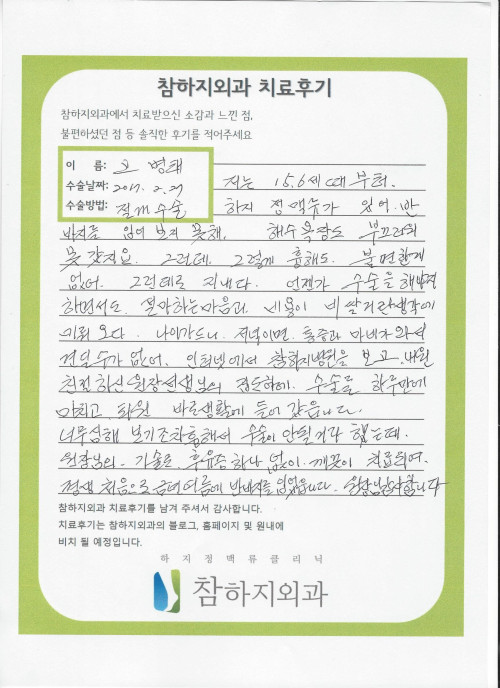 참하지외과 치료후기
참하지외과에서 치료받으신 소감과 느낀 점,
불편하셨던 점 등 솔직한 후기를 적어주세요
이 름: 조 병태
수술날짜: 2017. 2. 27
수술방법: 절개수술
저는 15,6세때 부터.
하지 정맥류가 있어. 반
바지를 입어 보지 못해. 해수욕장도 부끄러워
못 갔지요. 그런데. 그렇게 흉해도. 불편함이
없어. 그런데로 지냈다. 언젠가 수술을 해야
하면서도. 불안하는마음과 비용이 비쌀거란생각에
미뤄 오다. 나이가드니. 저녁이면. 통증과 마비가 와서
견딜수가 없어. 인터넷에서 참하지병원을 보고. 내원
친절하신 원장선생님의 집도하에. 수술을 하루만에
마치고. 퇴원 바로생활에 들어 갔읍니다.
너무심해 보기조차흉해서 수술이 안될거라 했는데.
원장님의. 기술로. 후유증하나 없이. 깨끗이 치료되어.
평생 처음으로 금년여름에 반바지를 입었읍니다. 원장님감사합니다
참하지외과 치료후기를 남겨 주셔서 감사합니다.
치료후기는 참하지외과의 블로그, 홈페이지 및 원내에
비치 될 예정입니다.
하지정맥류클리닉
참하지외과